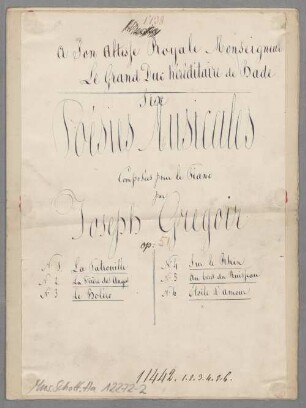 A Son Altesse Royale Monseigneur
Le Grand Duc héréditaire de Bade
Six
Poésies Musicales
Composées pour le Piano
par
Joseph Gregoir
op: 59
N° 1 La Patrouille
N° 2 La Prière des Anges
N° 3 Le Boléro
N° 4 Sur le Rhin
N° 5 Au bord du Ruisseau
N° 6 Etoile d'amour
11442. 1. 2. 3. 4. 5. 6.
Mus. Schott. Ha 12272-2